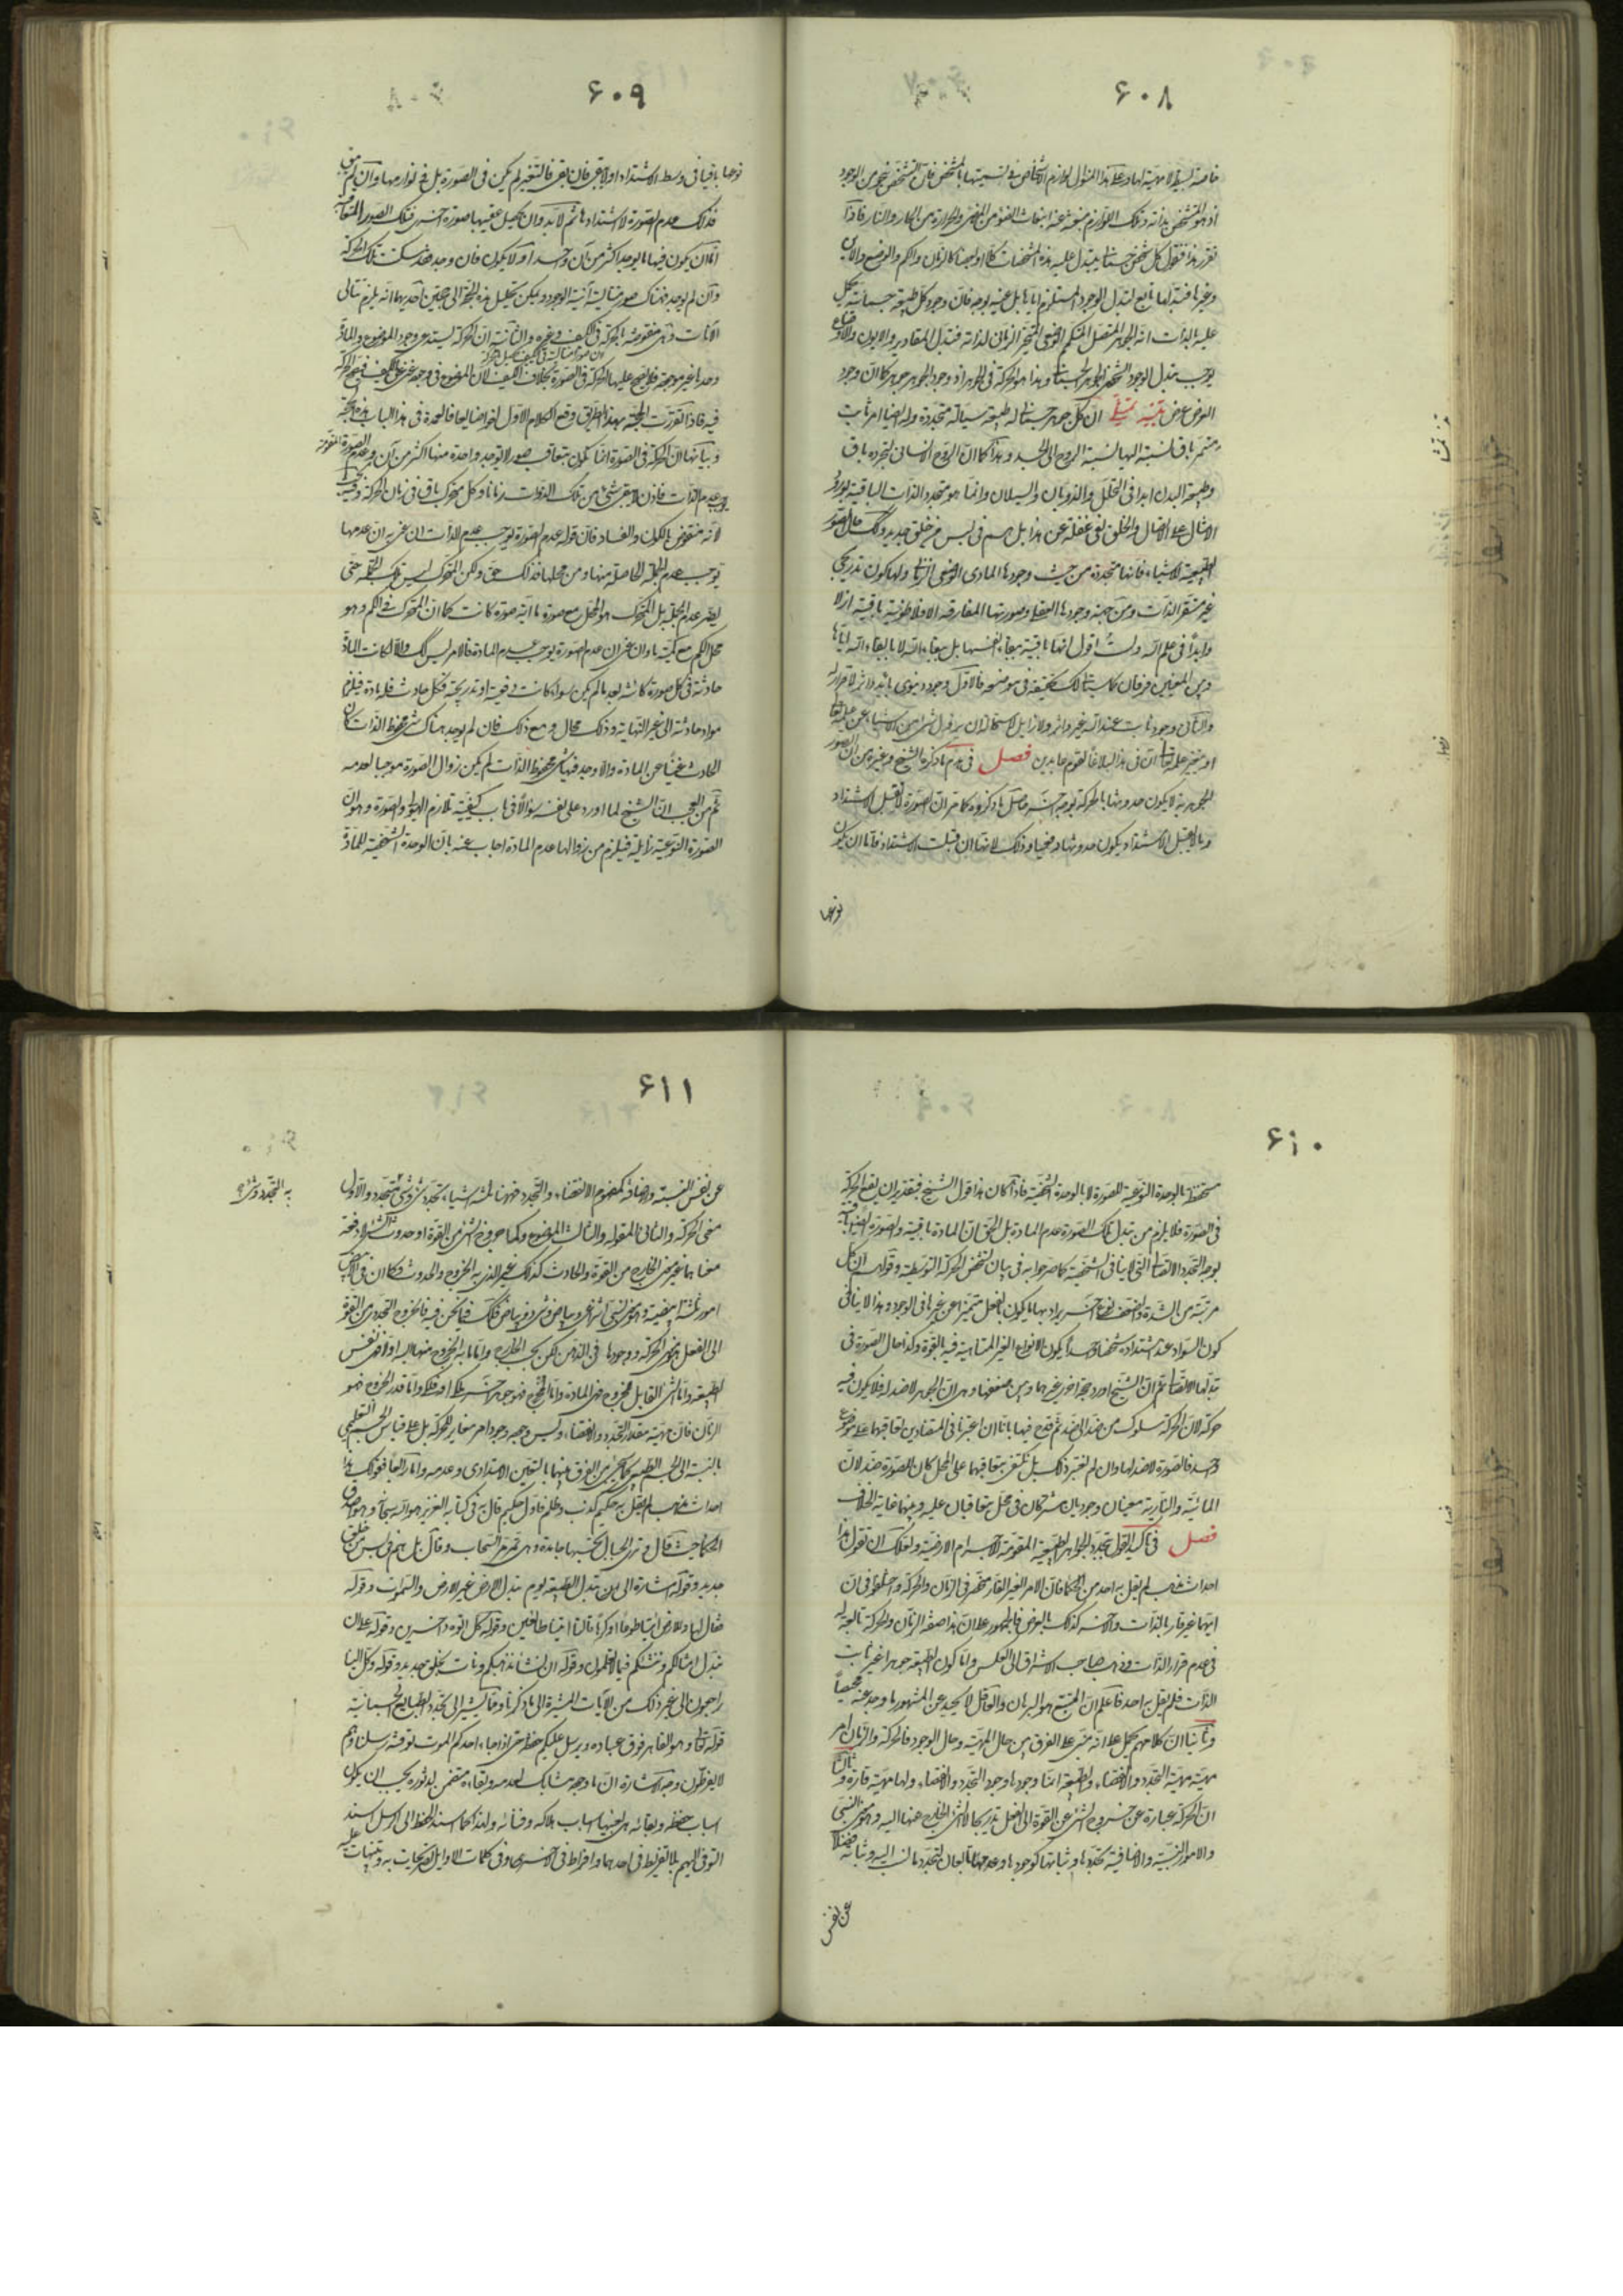 ۶۰۸
اذ هو المتشخص بذاته وتلك اللوازم منبعثة عنه انبعاث الضوء من المضيء والحرارة من الحار والنار فاذا
تقرر هذا فنقول كل شخص جسماني يتبدل عليه هذه المشخصات كلا او بعضا كالزمان والكم والوضع والاين
وغيرها فتبدلها تابع لتبدل الوجود المستلزم اياها بل عينه بوجه فان وجود كل طبيعة جسمانية يحمل
عليه بالذات انه الجوهر المتصل المتكمم الوضعي المتحيز الزماني لذاته فتبدل المقادير والالوان والاوضاع
يوجب تبدل الوجود الشخصي الجوهري الجسماني وهذا هو الحركة في الجوهر اذ وجود الجوهر جوهر كما ان وجود
العرض عرض تنبيه تمثيلي ان كل جوهر جسماني له طبيعة سيالة متجددة وله ايضا امر ثابت
مستمر باق نسبته اليها نسبة الروح الى الجسد وهذا كما ان الروح الانساني لتجرده باق
وطبيعة البدن ابدا في التحلل والذوبان والسيلان وانما هو متجدد الذات الباقية بورود
الامثال على الاتصال والخلق لفي غفلة عن هذا بل هم في لبس من خلق جديد وكذلك حال الصور
الطبيعية للاشياء فانها متجددة من حيث وجودها المادي الوضعي الزماني ولها كون تدريجي
غير مستقر الذات ومن حيث وجودها العقلي وصورتها المفارقة الافلاطونية باقية ازلا
وابدا في علم الله ولست اقول انها باقية ببقاء انفسها بل ببقاء الله لا بابقاء الله اياها
وبين المعنيين فرقان كما سيأتي لك تحقيقه في موضعه فالاول وجود دنيوي بائد داثر لا قرار له
والثاني وجود ثابت عند الله غير داثر ولا زايل لاستحالة ان يزول شيء من الاشياء عن علمه تعالى
او يتغير علمه تعالى ان في هذا لبلاغا لقوم عابدين فصل في هدم ما ذكره الشيخ وغيره من ان الصور
الجوهرية لا يكون حدوثها بالحركة بوجه آخر حاصل ما ذكروه كما مر ان الصورة لا تقبل الاشتداد
وما لا يقبل الاشتداد يكون حدوثها دفعيا وذلك لانها ان قبلت الاشتداد فاما ان يكون
نوعها
۶۰۹
نوعها باقيا في وسط الاشتداد او لا يبقى فان بقي فالتغير لم يكن في الصورة بل في لوازمها وان لم يبق
فذلك عدم الصورة لا اشتدادها ثم لا بد وان يحصل عقيبها صورة اخرى فتلك الصور المتعاقبة
اما ان يكون فيها ما يوجد اكثر من آن واحد او لا يكون فان وجد فقد سكنت تلك الحركة
وان لم يوجد فهناك صور متتالية آنية الوجود ويمكن تحليل هذه الحجة الى حجتين احديهما انه يلزم تتالي
الآنات وهي منقوضة بالحركة في الكيف وغيره والثانية ان الحركة تستدعي وجود الموضوع والمادة
وحدها غير موجودة فلا يصح عليها الحركة في الصورة بخلاف الكيف لان الموضوع في وجوده غني عن الكيف فيصح الحركة
فيه فاذا تقررت الحجة بهذا الطريق وقع الكلام الاول لغوا ضايعا فالعمدة في هذا الباب هذه الحجة
وبيانها ان الحركة في الصورة انما يكون بتعاقب صور لا توجد واحدة منها اكثر من آن وعدم الصورة المقومة
يوجب عدم الذات فاذن لا يبقى شيء من تلك الذوات زمانا وكل متحرك باق في زمان الحركة وفيه بحث
لانه منقوض بالكون والفساد فان قوله عدم الصورة يوجب عدم الذات ان عنى به ان عدمها
يوجب عدم الجملة الحاصلة منها ومن محلها فذلك حق ولكن المتحرك ليس تلك الجملة حتى
يضر عدم الجملة بل المتحرك هو المحل مع صورة ما اية صورة كانت كما ان المتحرك في الكم هو
محل الكم مع كمية ما وان عنى ان عدم الصورة يوجب عدم المادة فالامر ليس كذلك والا لكانت المادة
حادثة في كل صورة كائنة بعد ما لم يكن سواء كانت دفعية او تدريجية فكل حادث فله مادة فيلزم
مواد حادثة الى غير النهاية وذلك محال ومع ذلك فان لم يوجد هناك شيء محفوظ الذات كان
الحادث غنيا عن المادة وان وجد فيها شيء محفوظ الذات لم يكن زوال الصورة موجبا لعدمه
ثم من العجب ان الشيخ لما اورد على نفسه سؤالا في باب كيفية تلازم الهيولى والصورة وهو ان
الصورة النوعية زايلة فيلزم من زوالها عدم المادة اجاب عنه بان الوحدة الشخصية للمادة
۶۱۰
مستحفظة بالوحدة النوعية للصورة لا بالوحدة الشخصية فاذا كان هذا قول الشيخ فبتقدير ان يقع الحركة
في الصورة فلا يلزم من تبدل تلك الصورة عدم المادة بل الحق ان المادة باقية والصورة ايضا باقية
بوجه التجدد الاتصالي التي لا ينافي الشخصية كما صرحوا به في بيان تشخص الحركة التوسطية وقولهم ان كل
مرتبة من الشدة والضعف نوع آخر يراد بها ما يكون بالفعل متميزا عن غيرها في الوجود وهذا لا ينافي
كون السواد عند اشتداده شخصا واحدا يكون الانواع الغير المتناهية فيه بالقوة وكذا حال الصورة في
تبدلها الاتصالي ثم ان الشيخ اورد حجة اخرى غيرهما وبين ضعفها وهي ان الجوهر لا ضد له فلا يكون فيه
حركة لان الحركة سلوك من ضد الى ضد ثم قدح فيها بانا ان اعتبرنا في المتضادين تعاقبهما على موضوع
واحد فالصورة لا ضد لها وان لم نعتبر ذلك بل نكتفي بتعاقبهما على المحل كان للصورة ضد لان
المائية والنارية معنيان وجوديان مشتركان في محل يتعاقبان عليه وبينهما غاية الخلاف
فصل في تأكيد القول بتجدد الجواهر الطبيعية المقومة للاجرام ولعلك ان تقول هذا
احداث مذهب لم يقل به احد من الحكماء فان الامر الغير القار منحصر في الزمان والحركة واختلفوا في ان
ايهما غير قار بالذات والآخر كذلك بالعرض فالجمهور على ان هذا صفة الزمان والحركة تابعة له
في عدم قرار الذات وذهب صاحب الاشراق الى العكس واما كون الطبيعة جوهرا غير ثابت
الذات فلم يقل به احد فاعلم ان المتبع هو البرهان والعاقل لا يحيد عن المشهور ما وجد عنه محيصا
وثانيا ان كلامهم يحمل على انه مبني على الفرق بين حال المهية وحال الوجود فالحركة والزمان امر
مهيته مهية التجدد والانقضاء والطبيعة انما وجودها وجود التجدد والانقضاء ولها مهية قارة وثالثا
ان الحركة عبارة عن خروج الشيء عن القوة الى الفعل تدريجا لا الشيء الخارج عنها اليه وهو معنى نسبي
والامور النسبية والاضافية تجددها وثباتها كوجودها وعدمها تابعان لتجدد ما نسب اليه وثباته فضلا
عن نفس
۶۱۱
عن نفس النسبة والاضافة كمفهوم الانقضاء والتجدد فههنا ثلاثة اشياء تجدد شيء وشيء به التجدد وشيء متجدد والاول
معنى الحركة والثاني المقولة والثالث الموضوع وكذا خروج الشيء من القوة او حدوث الشيء لا دفعة
معناهما غير معنى الخارج من القوة والحادث كذلك غير الذي به الخروج والحدوث وكما ان في الابيض
امور ثلاثة ابيضية وهي معنى نسبي انتزاعي وبياض وشيء ذو بياض فكذلك فيما نحن فيه فالخروج التجددي من القوة
الى الفعل هو معنى الحركة ووجودها في الذهن لكن بحسب الخارج واما ما به الخروج منها اليه اولا فهي نفس
الطبيعة واما الشيء القابل للخروج فهي المادة واما المخرج فهو جوهر آخر ملكي او فلكي واما قدر الخروج فهو
الزمان فان مهيته مقدار التجدد والانقضاء وليس وجوده وجود امر مغاير للحركة بل على قياس الجسم التعليمي
بالنسبة الى الجسم الطبيعي كما سيجيء من الفرق بينهما بالتعين الامتدادي وعدمه واما رابعا فقولك هذا
احداث مذهب لم يقل به حكيم كذب وظلم فاول حكيم قال به في كتابه العزيز هو الله سبحانه وهو اصدق
الحكماء حيث قال وترى الجبال تحسبها جامدة وهي تمر مر السحاب وقال بل هم في لبس من خلق
جديد وقوله اشارة الى تبدل الطبيعة يوم تبدل الارض غير الارض والسموات وقوله
فقال لها وللارض ائتيا طوعا او كرها قالتا اتينا طائعين وقوله كل اتوه داخرين وقوله على ان
نبدل امثالكم وننشئكم فيما لا تعلمون وقوله ان يشأ يذهبكم ويأت بخلق جديد وقوله وكل الينا
راجعون الى غير ذلك من الآيات المشيرة الى ما ذكرناه ومما يشير الى تجدد الطبايع الجسمانية
قوله تعالى وهو القاهر فوق عباده ويرسل عليكم حفظة حتى اذا جاء احدكم الموت توفته رسلنا وهم
لا يفرطون وجه الاشارة ان ما وجوده مشابك لعدمه وبقاءه متضمن لدثوره يجب ان يكون
اسباب حفظه وبقائه هي بعينها اسباب هلاكه وفنائه ولهذا كما اسند الحفظ الى الرسل اسند
التوفي اليهم بلا تفريط في احدهما وافراط في الاخرى وفي كلمات الاوايل تصريحات به وتنبيهات عليه
به التجدد وشيء